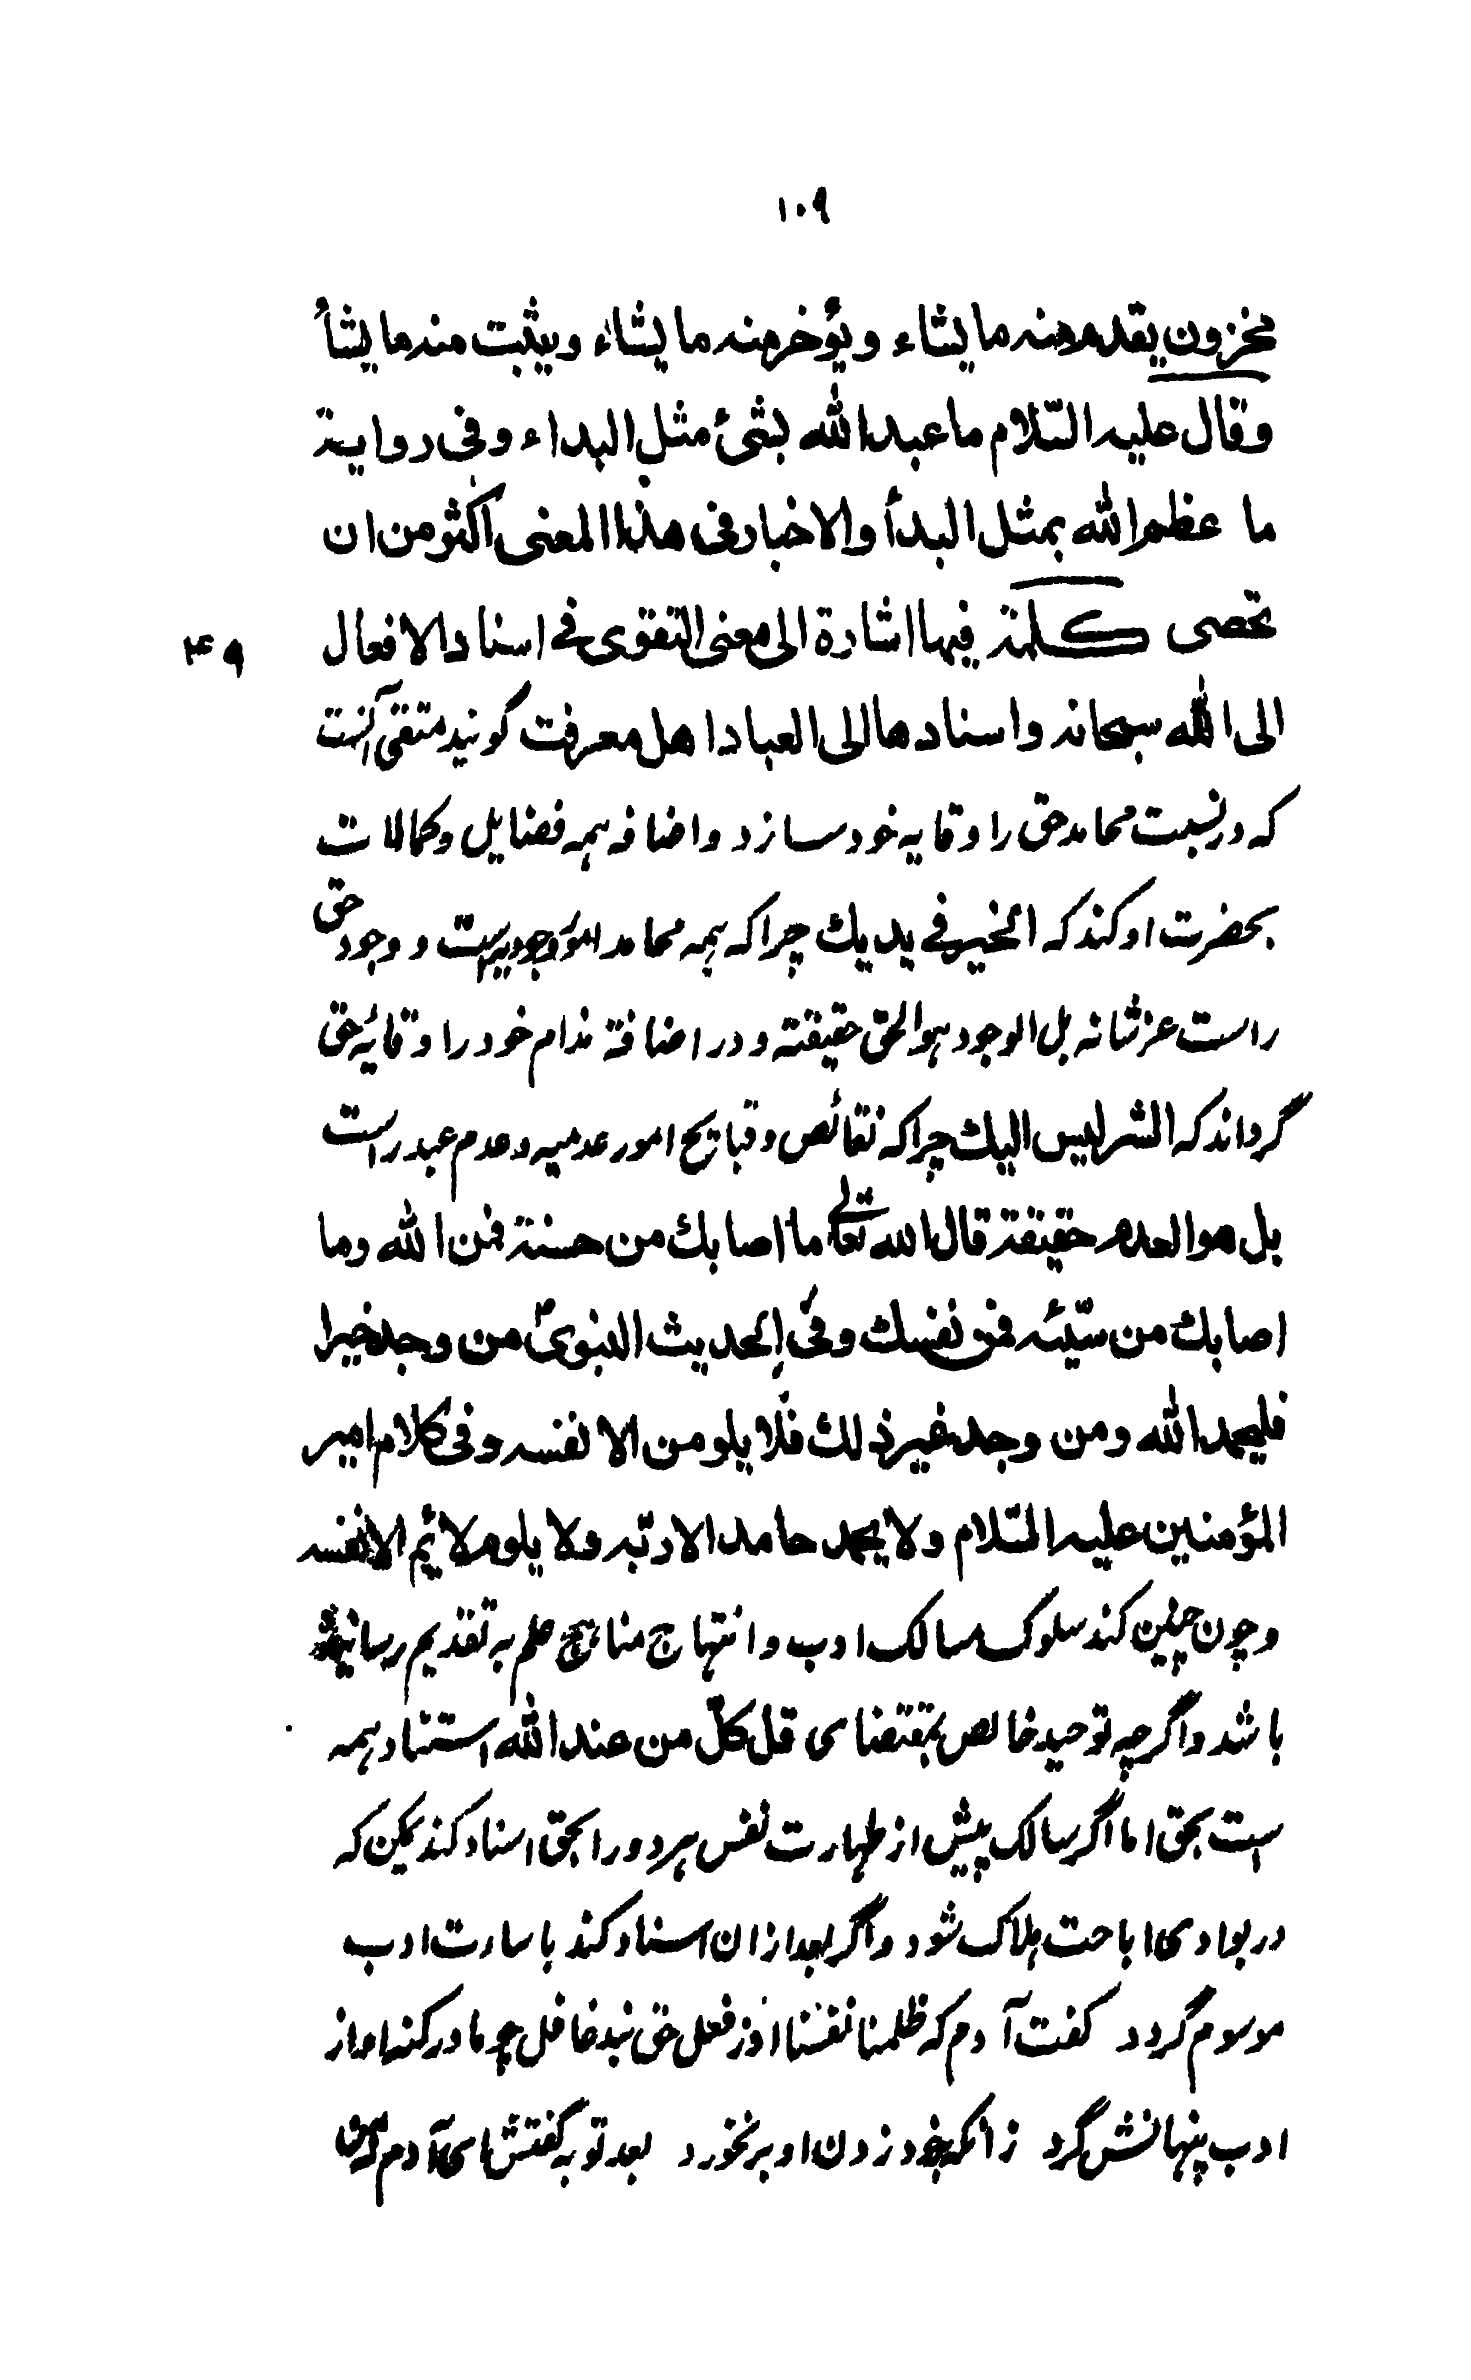 ١٠٩
مخزون يقدم منه ما يشاء ويؤخر منه ما يشاء ويثبت منه ما يشأ
وقال عليه السّلام ما عبد الله بشئ مثل البداء وفى رواية
ما عظم الله بمثل البدأ والاخبار فى هذا المعنى اكثر من ان
تحصى كلمة فيها اشارة الى معنى التقوى فى اسناد الافعال
۴۹
الى الله سبحانه واسنادها الى العباد اهل معرفت گويند متقى آنست
كه در نسبت محامد حق را وقايه خود سازد واضافه همه فضايل وكمالات
بحضرت او كند كه الخير فى يديك چرا كه همه محامد امور وجوديست و وجود حق
راست عز شانه بل الوجود هو الحق حقيقته و در اضافة مذام خود را وقايهٔ حق
گرداند كه الشر ليس اليك چرا كه نقائص و قبايح امور عدميه و عدم عبد راست
بل هو العدم حقيقة قال الله تعالى ما اصابك من حسنة فمن الله وما
اصابك من سيّئه فمن نفسك وفى الحديث النبوىّ من وجد خيرا
فليحمد الله ومن وجد غير ذلك فلا يلومن الا نفسه وفى كلام امير
المؤمنين عليه السّلام ولا يحمد حامد الا ربّه ولا يلوم لائم الا نفسه
وچون چنين كند سلوك مسالك ادب و انتهاج مناهج علم به تقديم رسانيده
باشد واگرچه توحيد خالص بمقتضاى قل كلّ من عند الله استناد همه
است بحق اما اگر سالك پيش از طهارت نفس هر دو را بحق اسناد كند يمكن كه
در بوادى اباحت هلاك شود واگر بعد از ان اسناد كند باساءت ادب
موسوم گردد گفت آدم كه ظلمنا نفسنا او ز فعل حق نبد غافل چو ما در گنه او از
ادب پنهانش كرد زانكه بخود زدن او بر نخورد بعد توبه گفتش اى آدم نه من